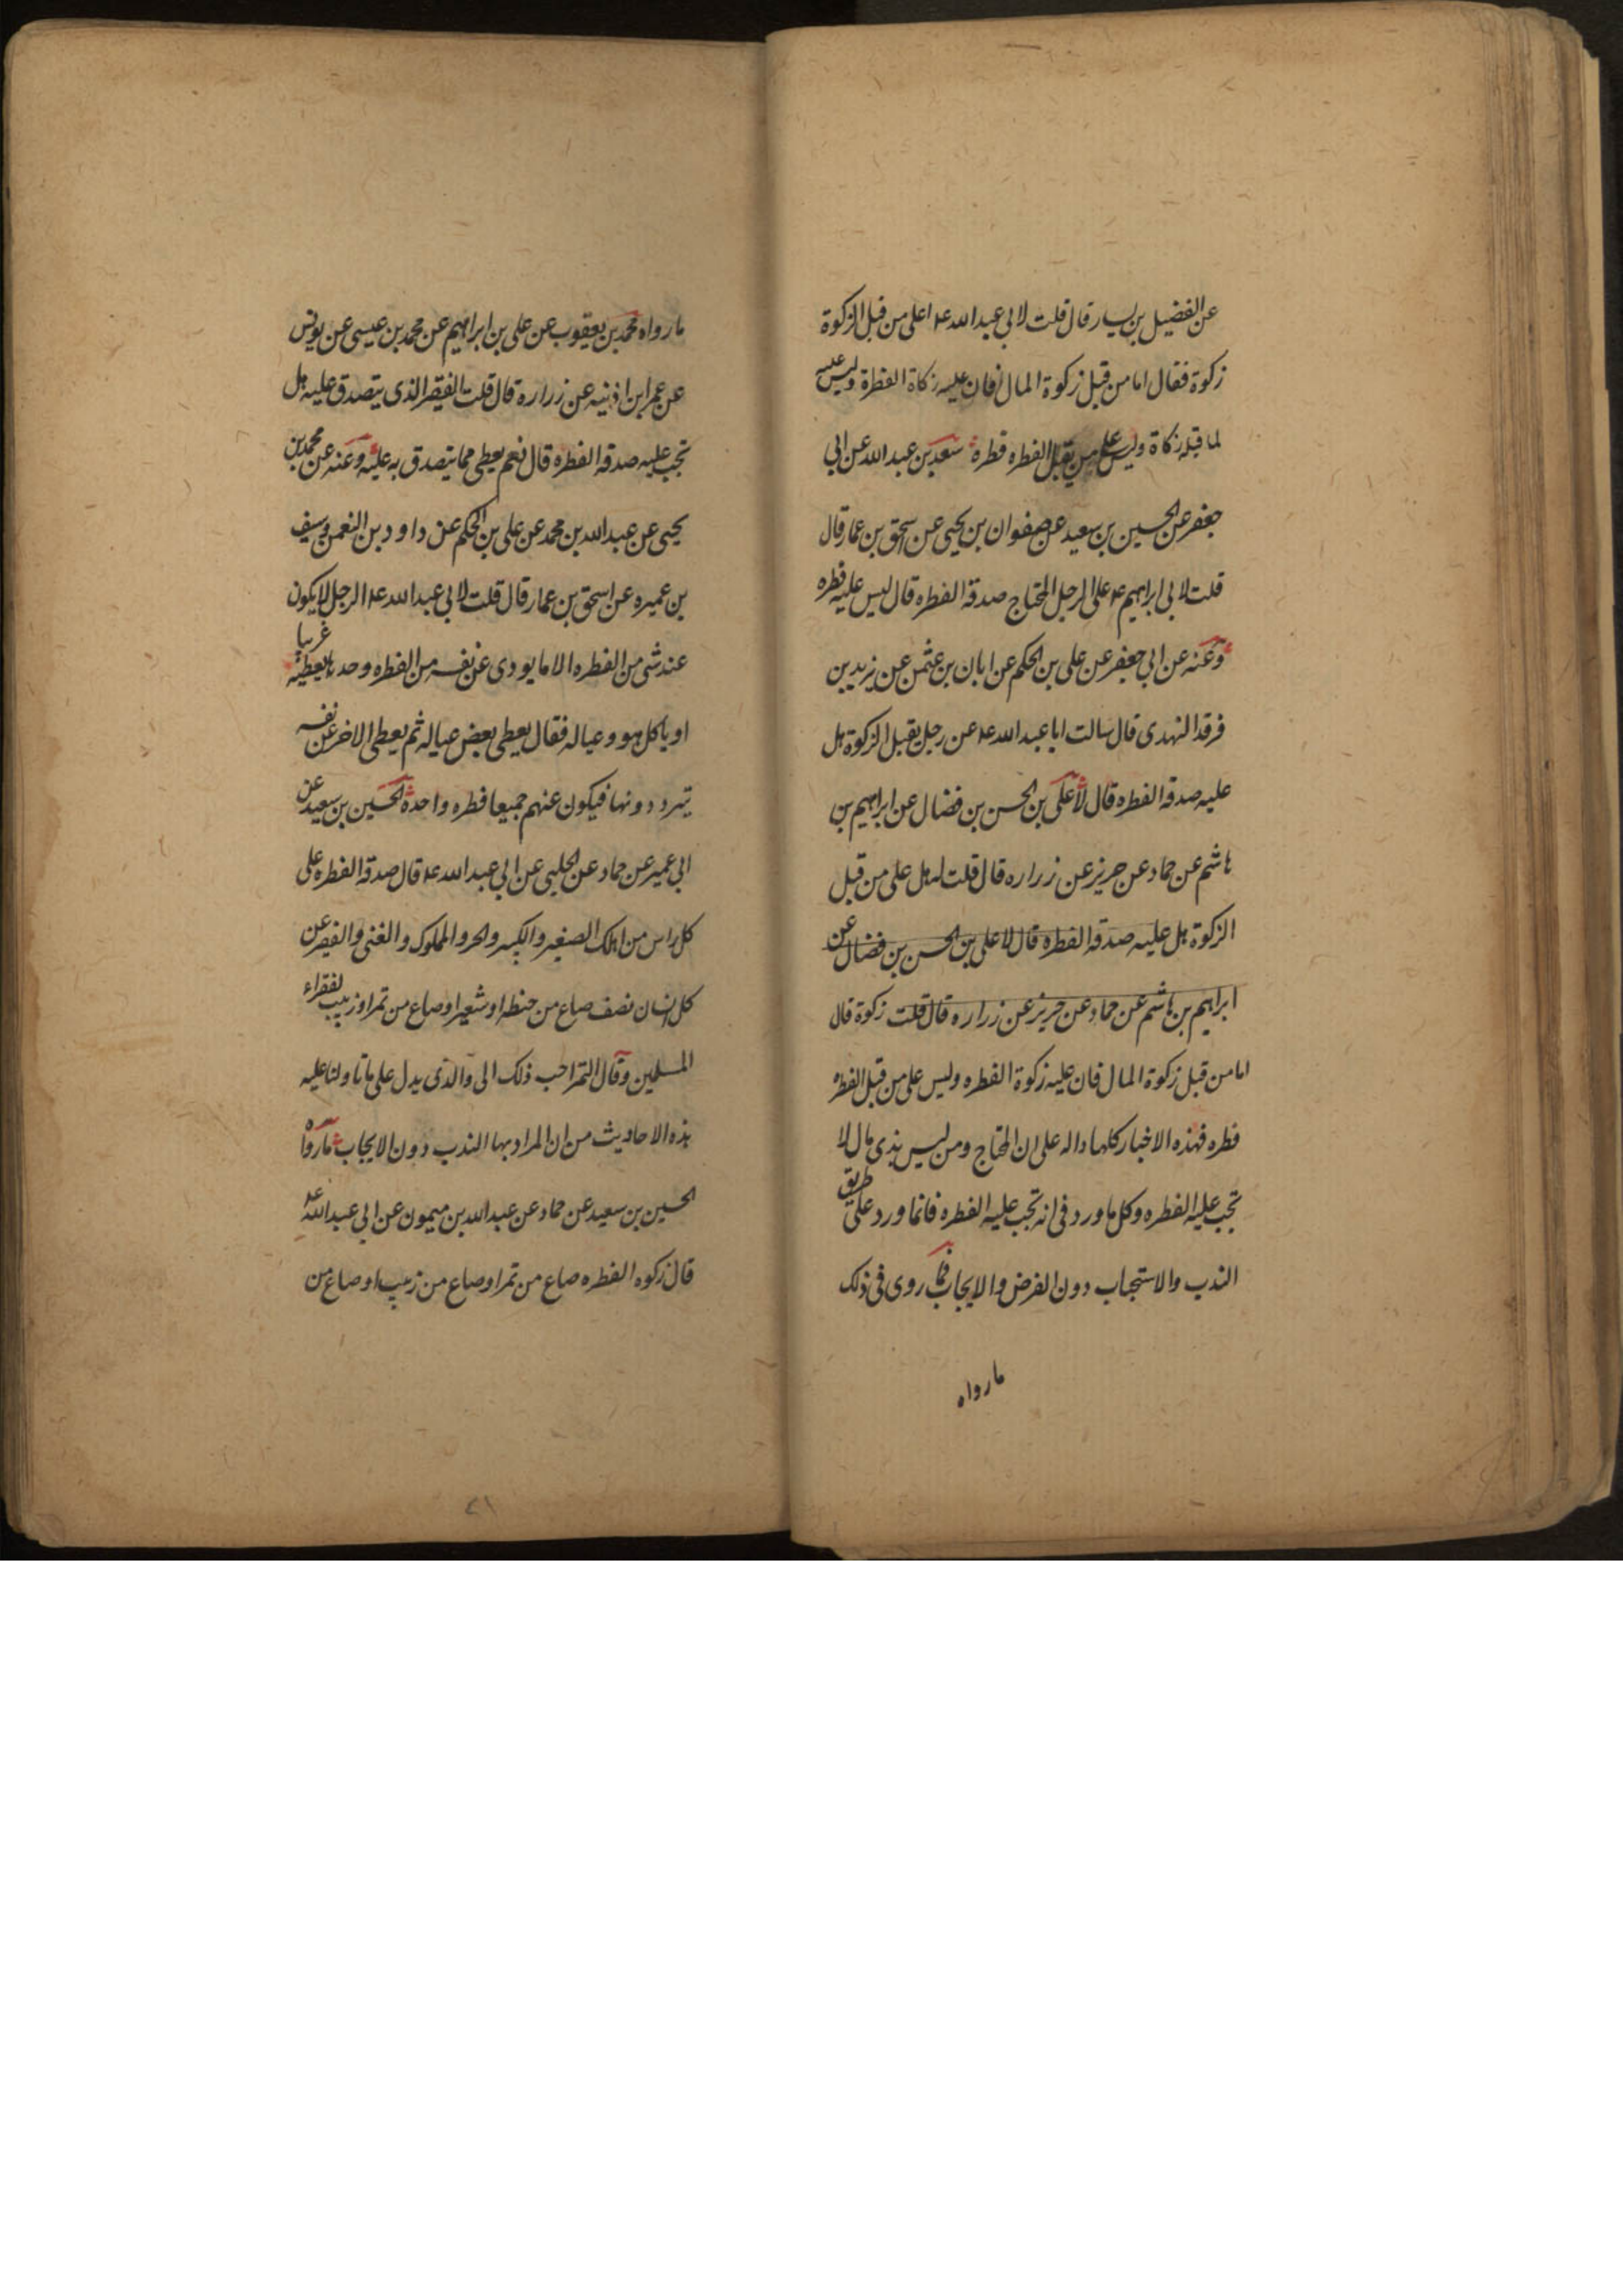 عن الفضيل بن يسار قال قلت لابي عبد الله عه اعلى من قبل الزكوة
زكوة فقال اما من قبل زكوة المال فان عليه زكاة الفطرة وليس عليه
لما قبله زكاة وليس على من يقبل الفطره فطرة سعد بن عبد الله عن ابي
جعفر عن الحسين بن سعيد عن صفوان بن يحيى عن اسحق بن عمار قال
قلت لابي ابراهيم عه على الرجل المحتاج صدقة الفطره قال ليس عليه فطره
وعنه عن ابي جعفر عن على بن الحكم عن ابان بن عثمن عن يزيد بن
فرقد النهدى قال سالت ابا عبد الله عه عن رجل يقبل الزكوة هل
عليه صدقة الفطره قال لا على بن الحسن بن فضال عن ابراهيم بن
هاشم عن حماد عن حريز عن زراره قال قلت له هل على من قبل
الزكوة هل عليه صدقة الفطره قال لا على بن الحسن بن فضال عن
ابراهيم بن هاشم عن حماد عن حريز عن زراره قال قلت زكوة قال
اما من قبل زكوة المال فان عليه زكوة الفطره وليس على من قبل الفطره
فطره فهذه الاخبار كلها داله على ان المحتاج ومن ليس بذى مال لا
تجب عليه الفطره وكل ما ورد فى انه تجب عليه الفطره فانما ورد على طريق
الندب والاستحباب دون الفرض والايجاب فما روى فى ذلك
ما رواه
ما رواه محمد بن يعقوب عن على بن ابراهيم عن محمد بن عيسى عن يونس
عن عمر ابن اذنيه عن زراره قال قلت الفقير الذى يتصدق عليه هل
تجب عليه صدقة الفطره قال نعم يعطى مما يتصدق به عليه وعنه عن محمد بن
يحيى عن عبد الله بن محمد عن على بن الحكم عن داود بن النعمن وسيف
بن عميره عن اسحق بن عمار قال قلت لابي عبد الله عه الرجل لا يكون
عنده شى من الفطره الا ما يودى عن نفسه من الفطره وحدها يعطيه غريبا
او ياكل هو وعياله فقال يعطى بعض عياله ثم يعطى الاخر عن نفسه
يتردد دونها فيكون عنهم جميعا فطره واحدة الحسين بن سعيد عن
ابي عمير عن حماد عن الحلبى عن ابي عبد الله عه قال صدقة الفطره على
كل راس من اهلك الصغير والكبير والحر والمملوك والغنى والفقير عن
كل انسان نصف صاع من حنطه او شعير او صاع من تمر او زبيب لفقراء
المسلمين وقال التمر احب ذلك الى والذى يدل على ما تاولنا عليه
هذه الاحاديث من ان المراد بها الندب دون الايجاب ما رواه
الحسين بن سعيد عن حماد عن عبد الله بن ميمون عن ابي عبد الله عه
قال زكوه الفطره صاع من تمر او صاع من زبيب او صاع من
٢١